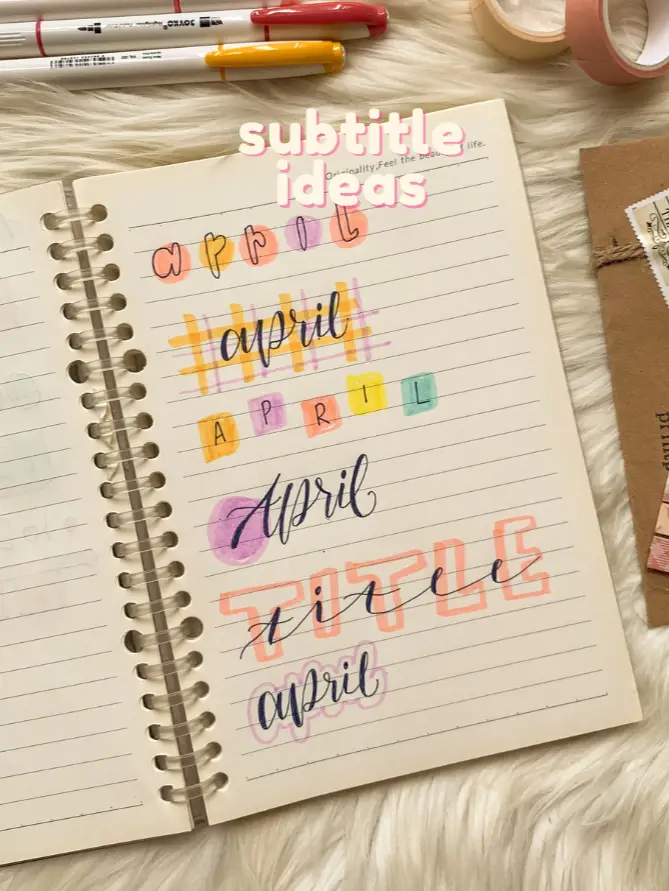 JOYKO
subtitle
ideas
Originality:Feel the life.
april
april
APRIL
April
TITLE
title
april